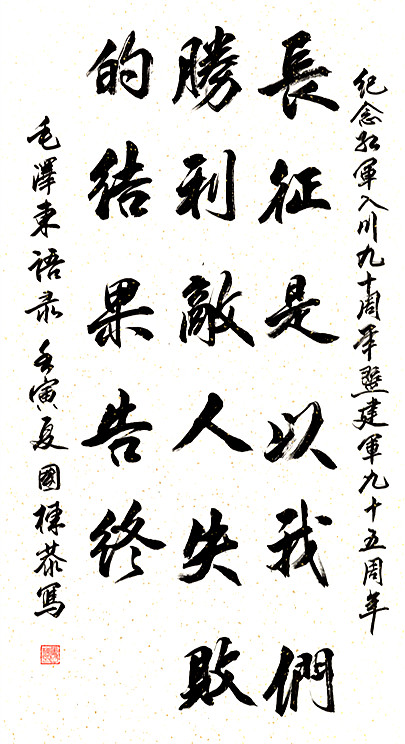 纪念红軍入川九十周年暨建軍九十五周年
長征是以我們
勝利敵人失敗
的結果告終
毛澤東語录壬寅夏國棟恭写